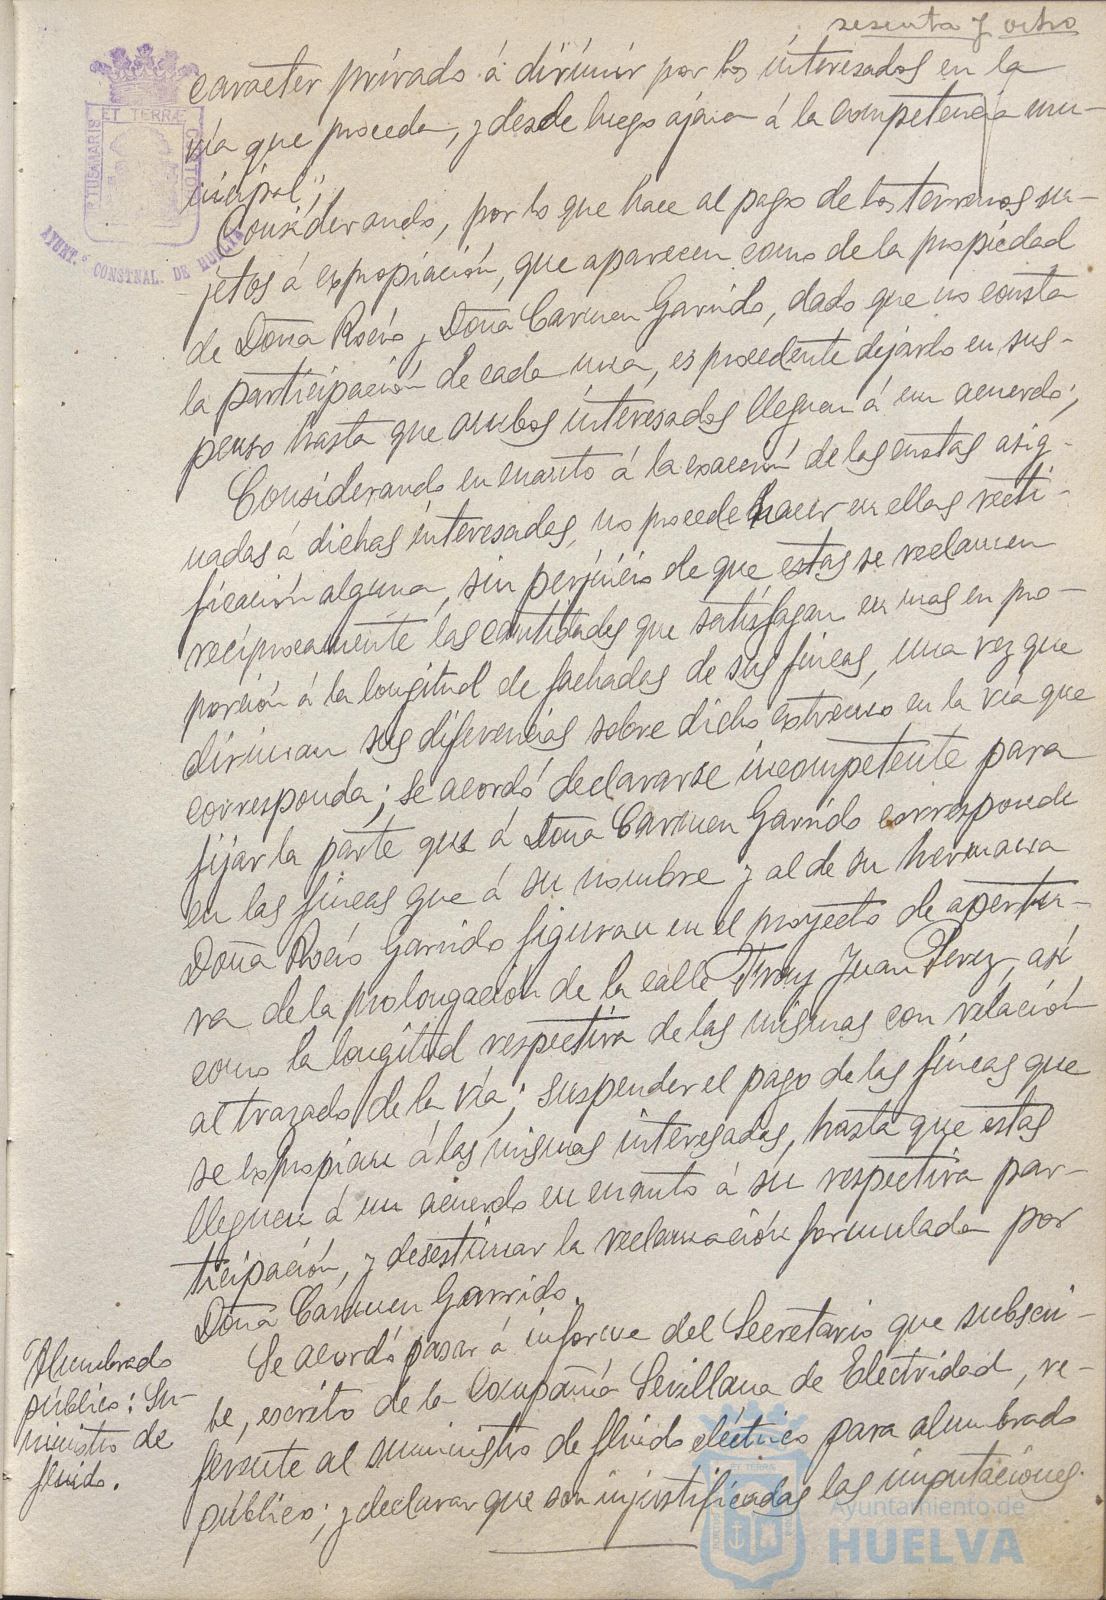 sesenta y ocho
PORTUS MARIS ET TERRÆ CUSTODIA
AYUNT.º CONSTNAL. DE HUELVA
caracter privado á dirimir por los interesados en la
vía que proceda, y desde luego ajena á la competencia mu-
nicipal;
Considerando, por lo que hace al pago de los terrenos su-
jetos á expropiación, que aparecen como de la propiedad
de Doña Rocío y Doña Carmen Garrido, dado que no consta
la participación de cada una, es procedente dejarlo en sus-
penso hasta que ambos interesados lleguen á un acuerdo;
Considerando en cuanto á la exacción de las cuotas asig-
nadas á dichas interesadas, no procede hacer en ellas recti-
ficación alguna, sin perjuicio de que estas se reclamen
recíprocamente las cantidades que satisfagan en mas en pro-
porción á la longitud de fachadas de sus fincas, una vez que
diriman sus diferencias sobre dicho extremo en la vía que
corresponda; se acordó declararse incompetente para
fijar la parte que á Doña Carmen Garrido corresponde
en las fincas que á su nombre y al de su hermana
Doña Rocío Garrido figuran en el proyecto de apertu-
ra de la prolongación de la calle Fray Juan Perez, así
como la longitud respectiva de las mismas con relación
al trazado de la vía; suspender el pago de las fincas que
se expropian á las mismas interesadas, hasta que estas
lleguen á un acuerdo en cuanto á su respectiva par-
ticipación, y desestimar la reclamación formulada por
Doña Carmen Garrido.
Alumbrado
público: Su-
ministro de
fluido.
Se acordó pasar á informe del Secretario que subscri-
be, escrito de la Compañía Sevillana de Electricidad, re-
ferente al suministro de fluido eléctrico para alumbrado
público; y declarar que son injustificadas las imputaciones
Ayuntamiento de
HUELVA